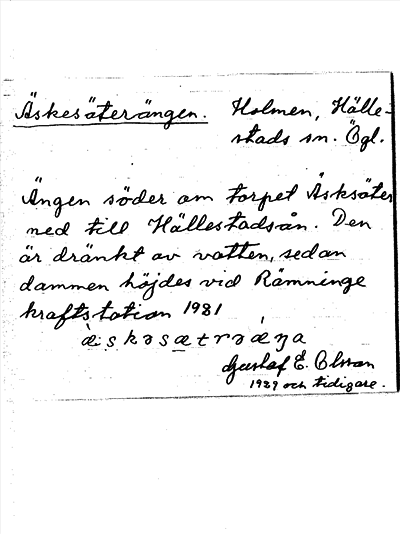 Äskesäterängen. Holmen, Hälle-
stads sn. Ögl.
Ängen söder om torpet Äsksäter
ned till Hällestadsån. Den
är dränkt av vatten, sedan
dammen höjdes vid Rämninge
kraftstation 1981
äskəsætrəæŋa
Gustaf E. Olsson
1989 och tidigare.